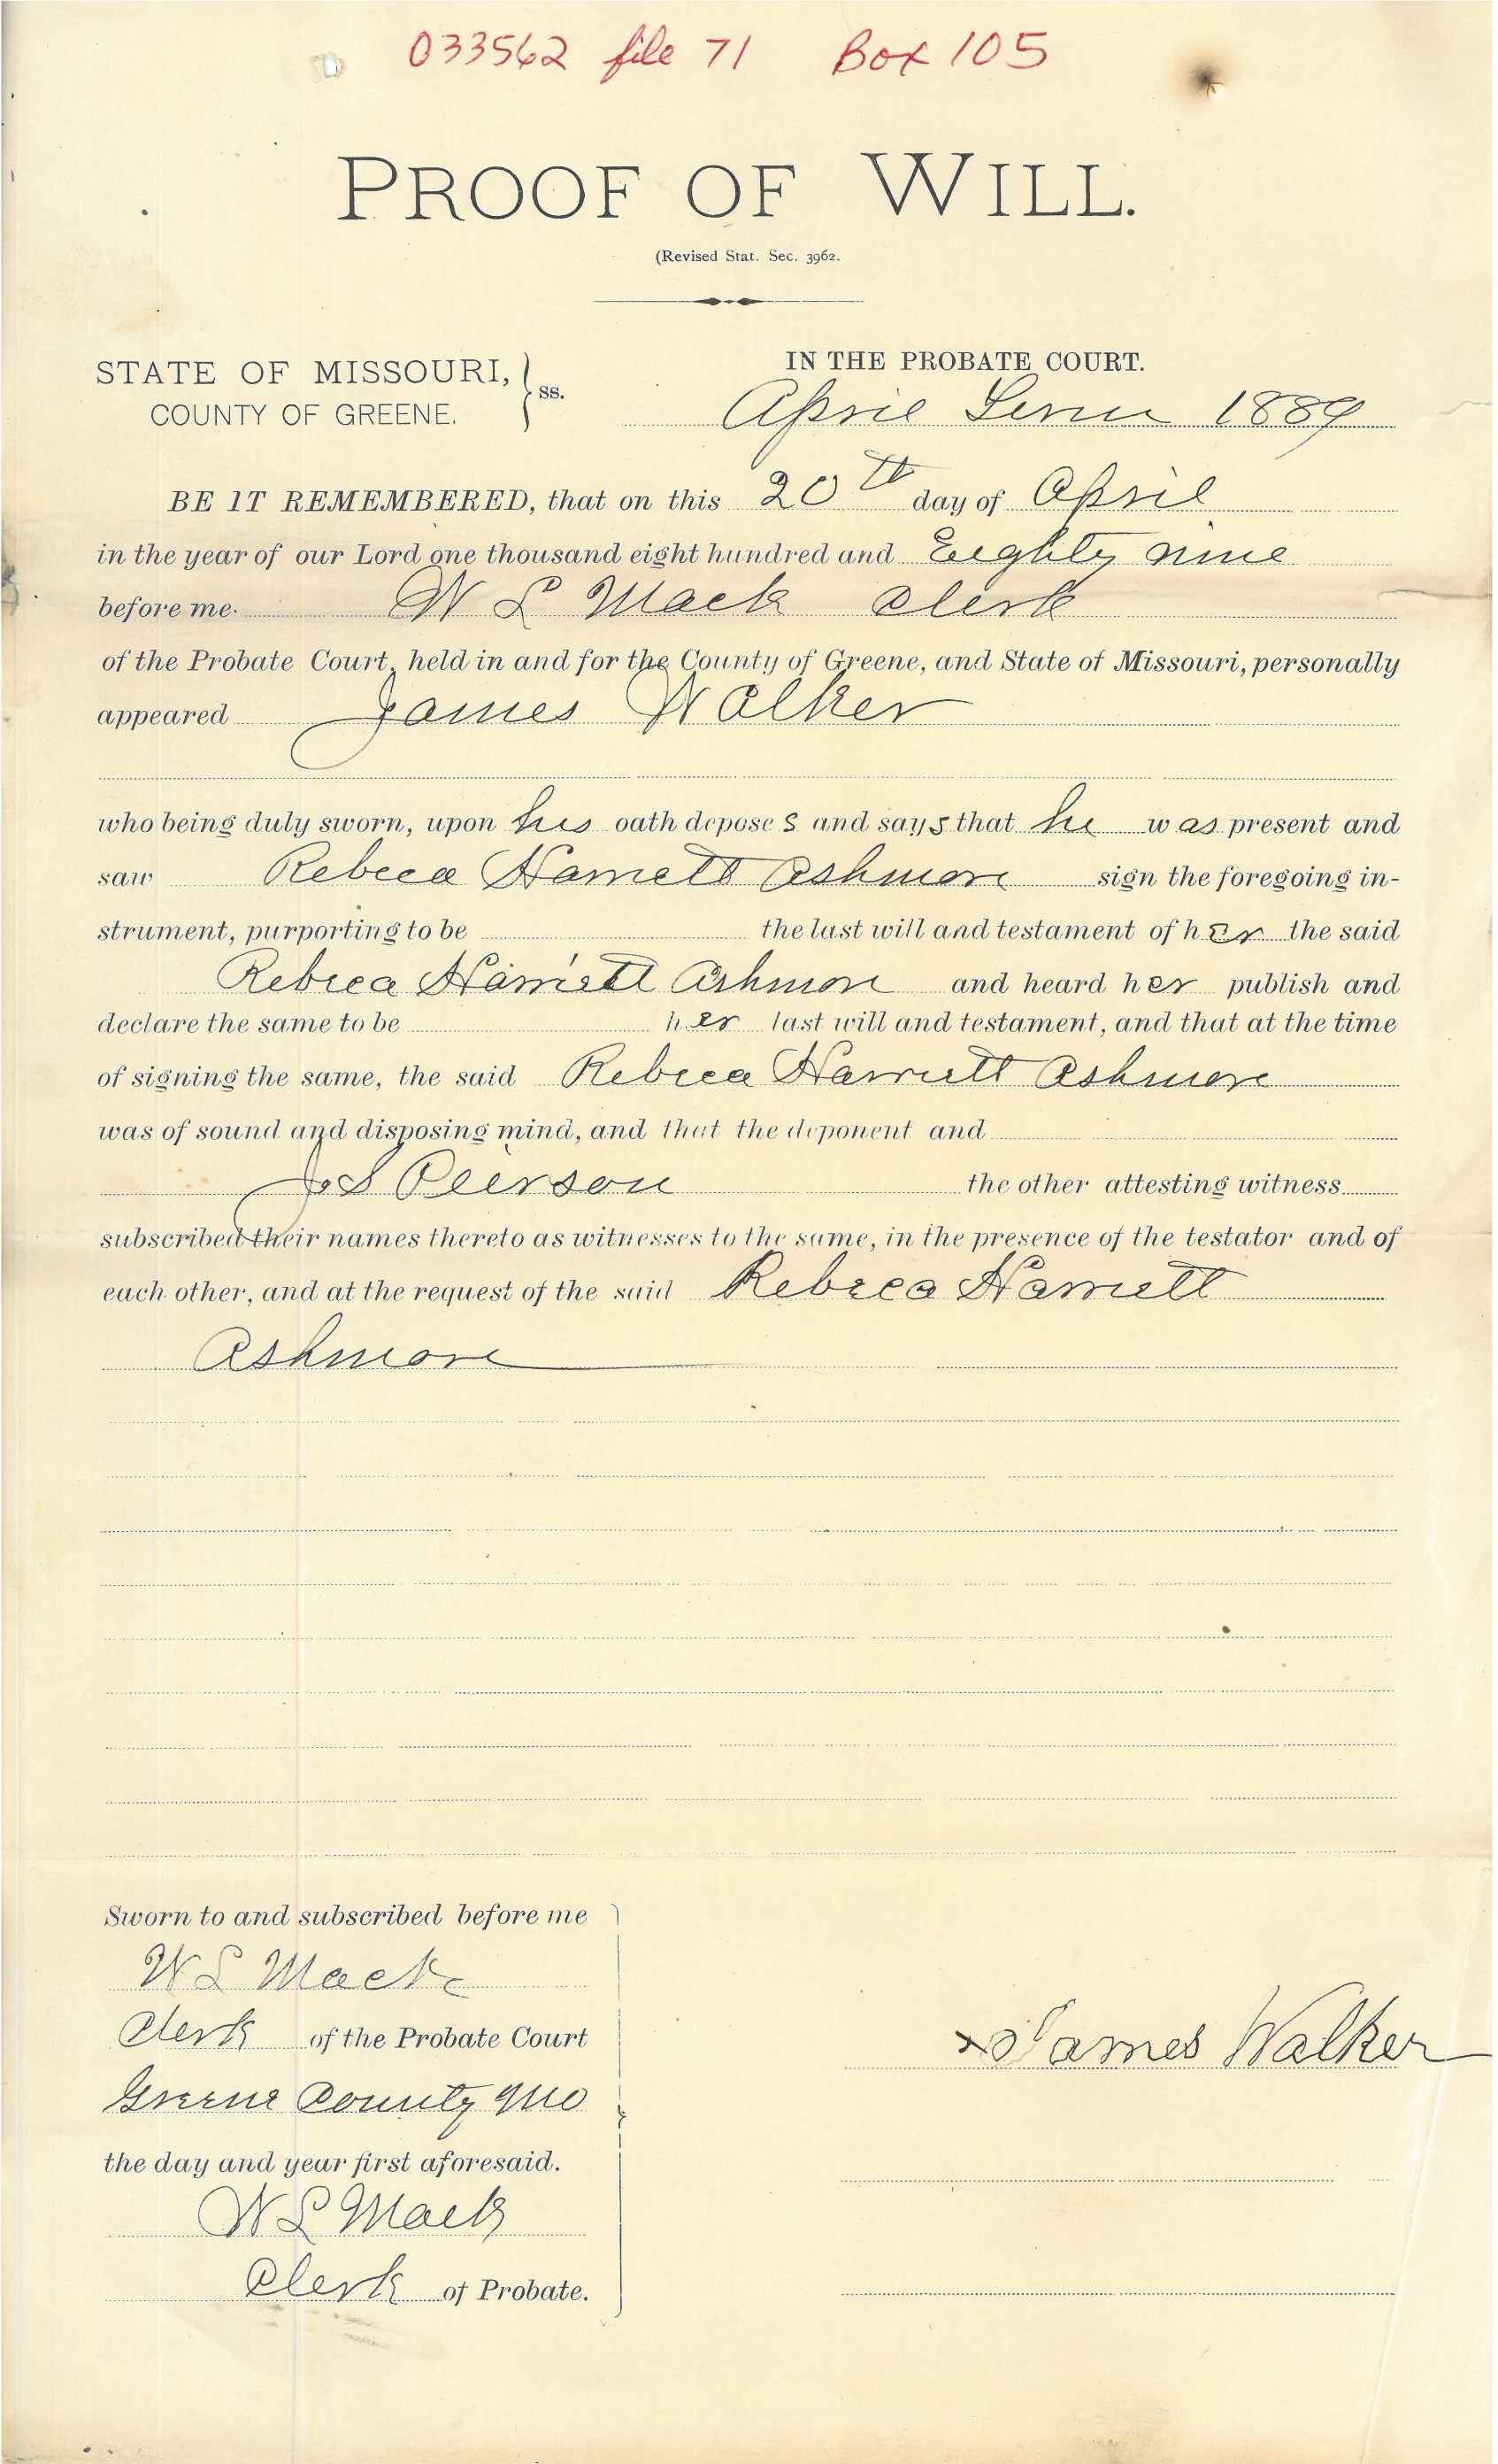 033562 file 71 Box 105
PROOF OF WILL.
(Revised Stat. Sec. 3962.
STATE OF MISSOURI,
COUNTY OF GREENE.
ss.
IN THE PROBATE COURT.
April Term 1889
BE IT REMEMBERED, that on this 20th day of April
in the year of our Lord one thousand eight hundred and Eighty nine
before me. W L Mack Clerk
of the Probate Court, held in and for the County of Greene, and State of Missouri, personally
appeared James Walker
who being duly sworn, upon his oath deposes and says that he was present and
saw Rebeca Harriett Ashmore sign the foregoing in-
strument, purporting to be the last will and testament of her the said
Rebeca Harriett Ashmore and heard her publish and
declare the same to be her last will and testament, and that at the time
of signing the same, the said Rebeca Harriett Ashmore
was of sound and disposing mind, and that the deponent and
J S Peerson the other attesting witness
subscribed their names thereto as witnesses to the same, in the presence of the testator and of
each other, and at the request of the said Rebeca Harriett
Ashmore
Sworn to and subscribed before me
W L Mack
Clerk of the Probate Court
Greene County Mo
the day and year first aforesaid.
W L Mack
Clerk of Probate.
x James Walker